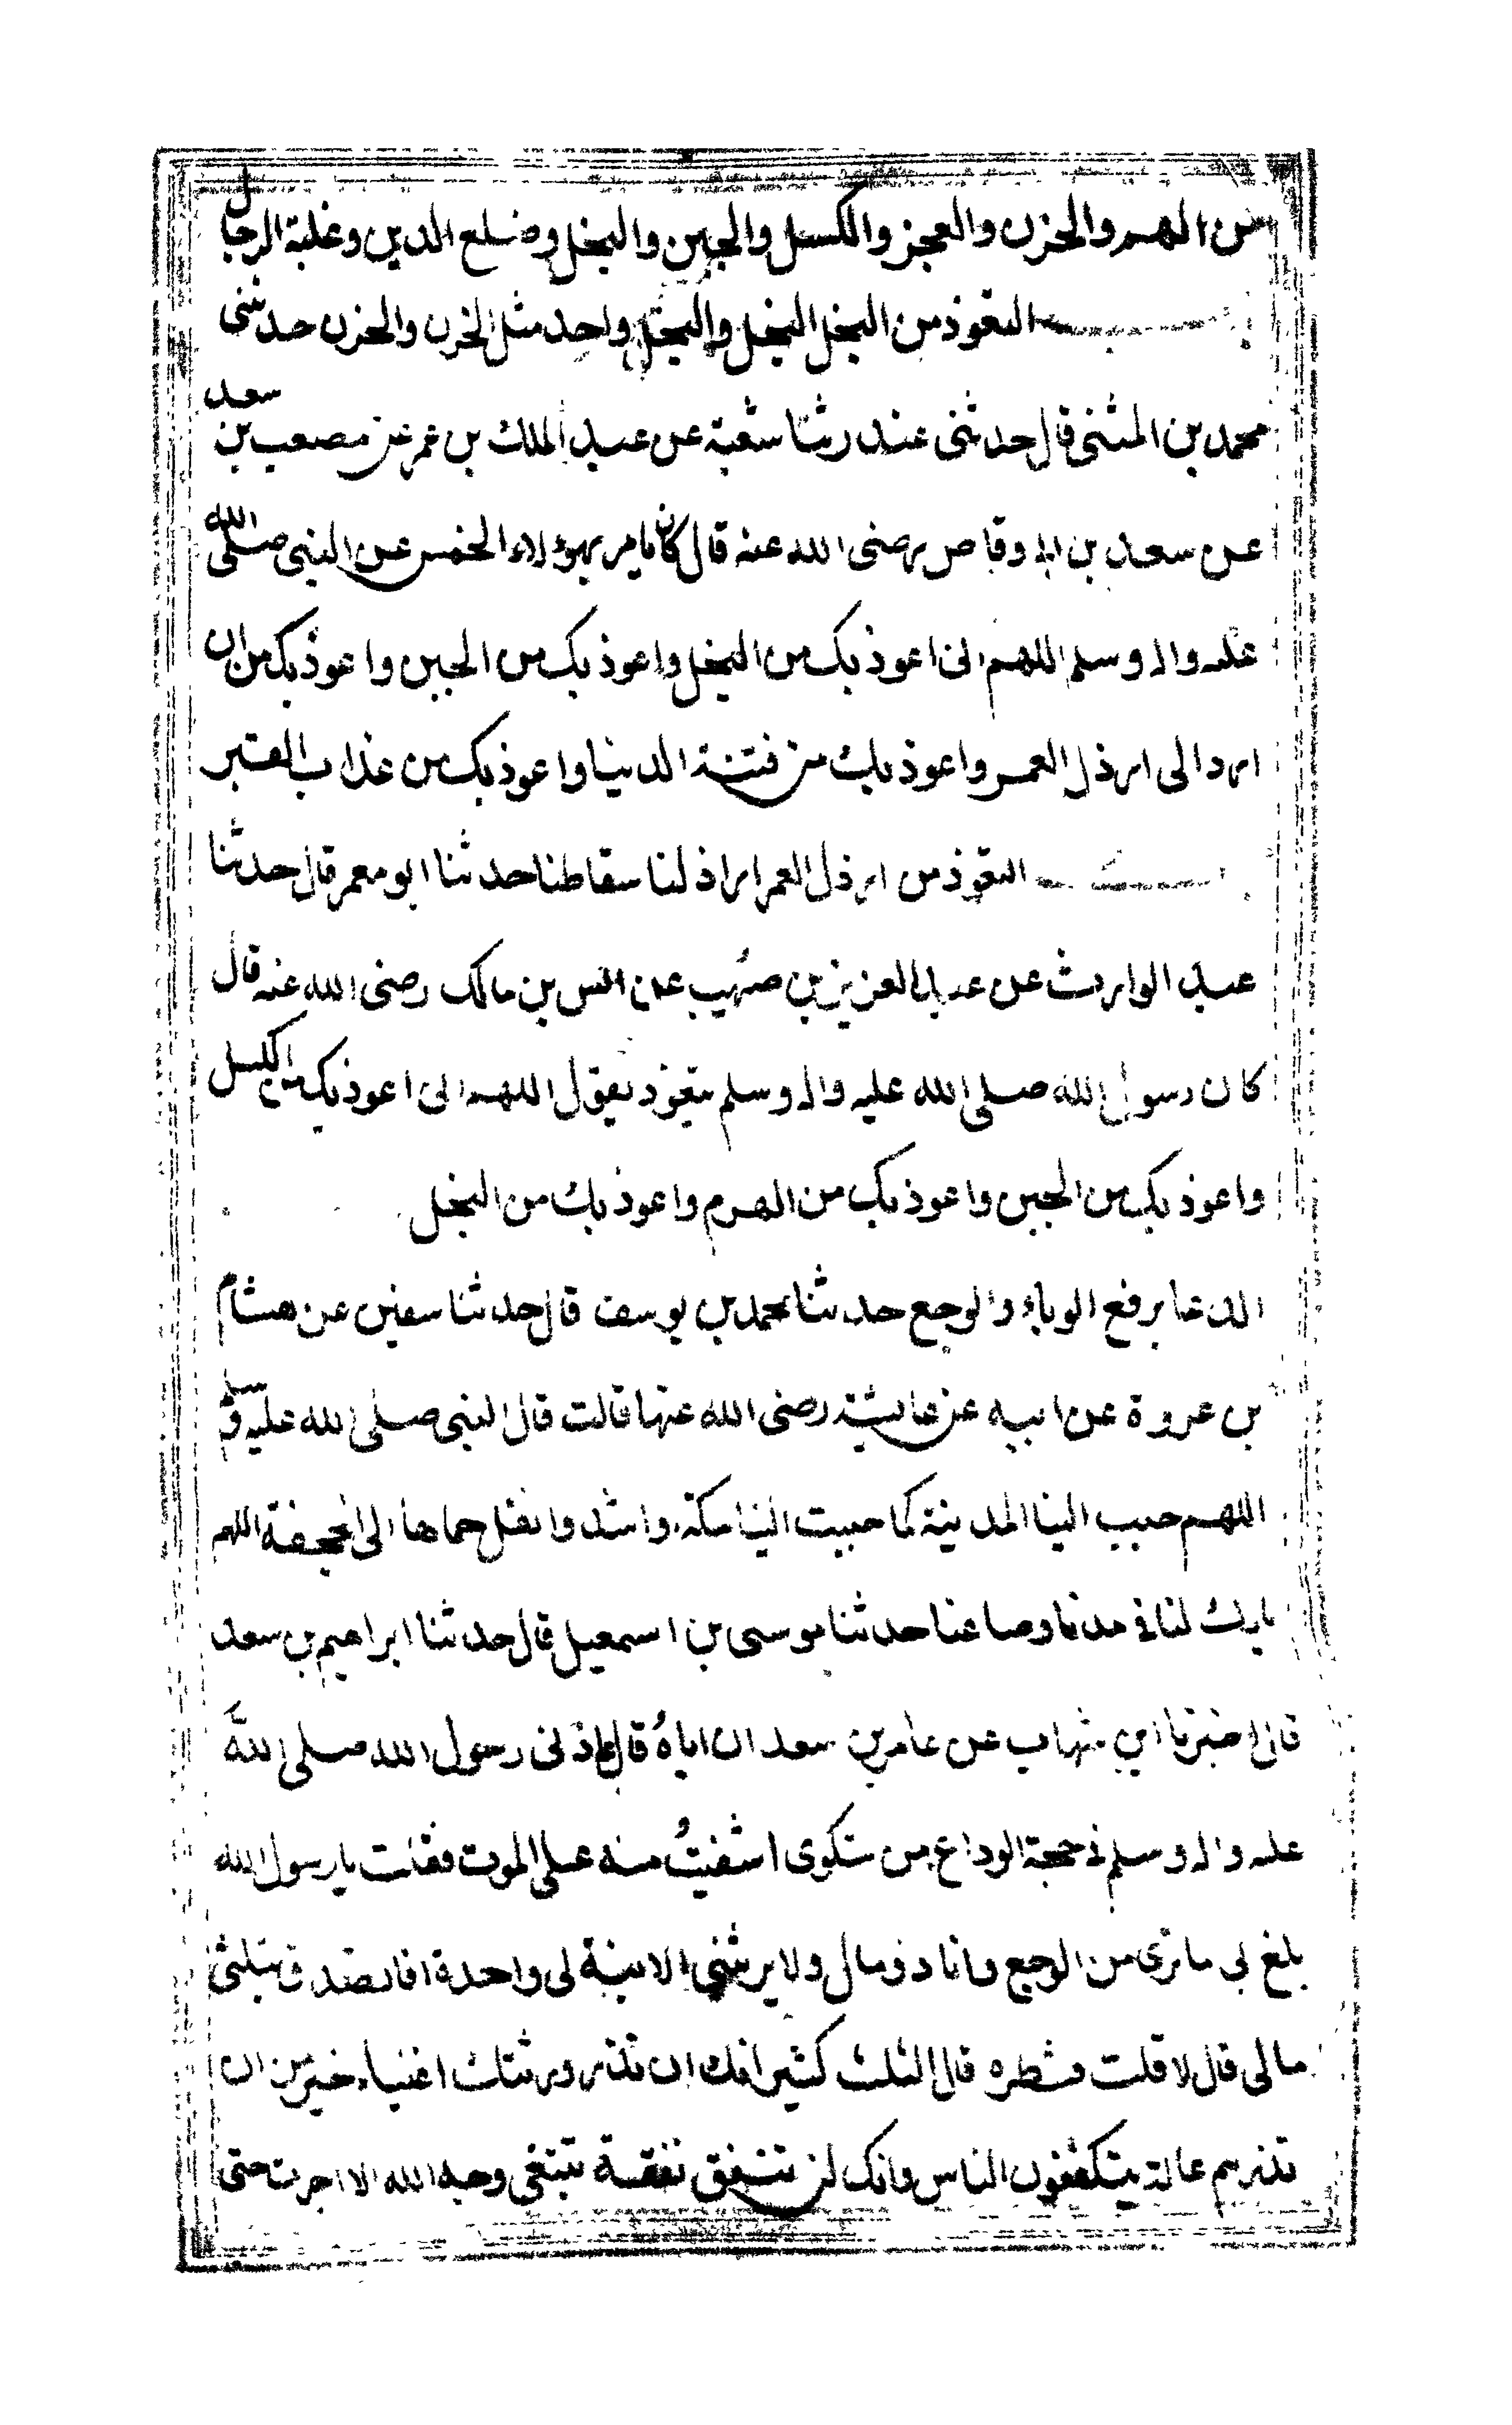 من الهم والحزن والعجز والكسل والجبن والبخل وضلع الدين وغلبة الرجال
باب التعوذ من البخل البخل والبخل واحد مثل الحزن والحزن حدثنى
محمد بن المثنى قال حدثنى غندر ثنا شعبة عن عبد الملك بن عمر عن مصعب بن سعد
عن سعد بن ابى وقاص رضى الله عنه قال كان يامر بهؤلاء الخمس عن النبى صلى الله
عليه واله وسلم اللهم انى اعوذ بك من البخل واعوذ بك من الجبن واعوذ بك من ان
ارد الى ارذل العمر واعوذ بك من فتنة الدنيا واعوذ بك من عذاب القبر
باب التعوذ من ارذل العمر اراذلنا سقاطنا حدثنا ابو معمر قال حدثنا
عبد الوارث عن عبد العزيز بن صهيب عن انس بن مالك رضى الله عنه قال
كان رسول الله صلى الله عليه واله وسلم يتعوذ يقول اللهم انى اعوذ بك من الكسل
واعوذ بك من الجبن واعوذ بك من الهرم واعوذ بك من البخل
الدعا برفع الوباء والوجع حدثنا محمد بن يوسف قال حدثنا سفين عن هشام
بن عروة عن ابيه عن عايشة رضى الله عنها قالت قال النبى صلى الله عليه وسلم
اللهم حبب الينا المدينة كما حببت الينا مكة واشد وانقل حماها الى الجحفة اللهم
بارك لنا فى مدنا وصاعنا حدثنا موسى بن اسمعيل قال حدثنا ابراهيم بن سعد
قال اخبرنا ابن شهاب عن عامر بن سعد ان اباه قال عادنى رسول الله صلى الله
عليه واله وسلم فى حجة الوداع من شكوى اشفيت منه على الموت فقلت يا رسول الله
بلغ بى ما ترى من الوجع وانا ذو مال ولا يرثنى الا ابنة لى واحدة افاتصدق بثلثى
مالى قال لا قلت فشطره قال الثلث كثير انك ان تذر ورثتك اغنياء خير من ان
تذرهم عالة يتكففون الناس وانك لن تنفق نفقة تبتغى وجه الله الا اجرت حتى